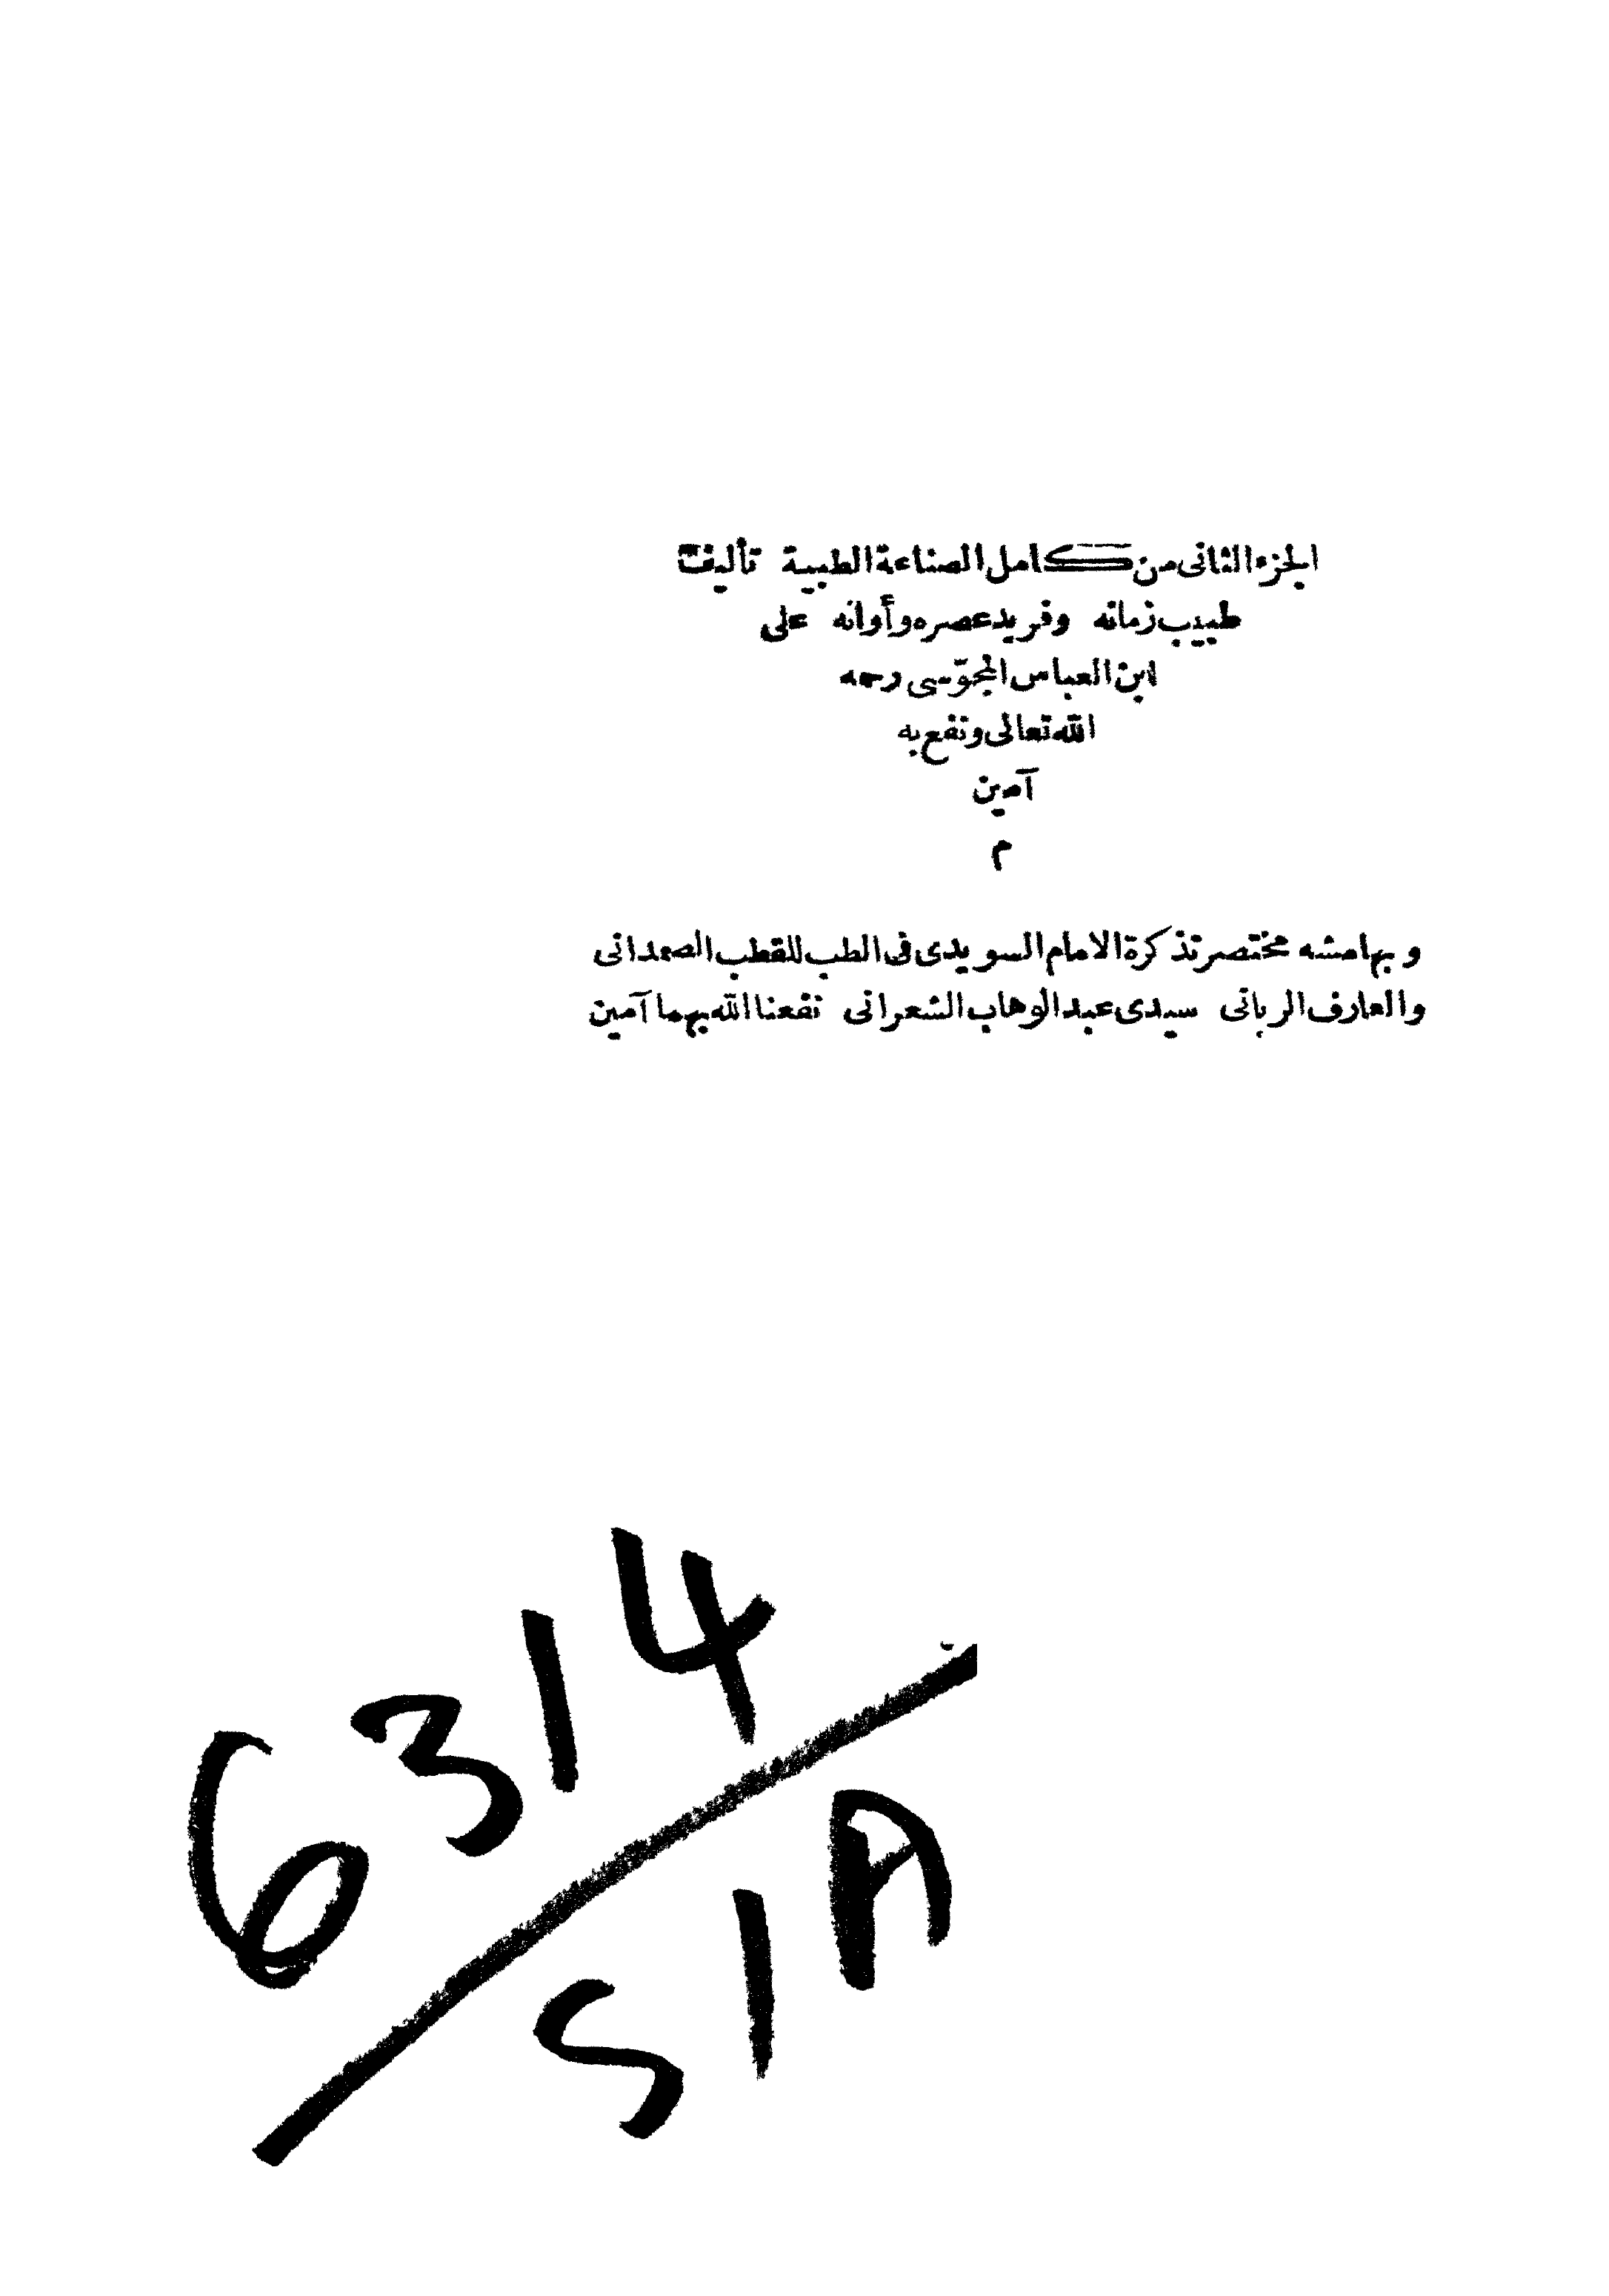 الجزء الثانى من كامل الصناعة الطبية تأليف
طبيب زمانه وفريد عصره وأوانه على
ابن العباس المجوسى رحمه
الله تعالى ونفع به
آمين
م
وبهامشه مختصر تذكرة الامام السويدى فى الطب للقطب الصمدانى
والعارف الربانى سيدى عبد الوهاب الشعرانى نفعنا الله بهما آمين
6314
S1A